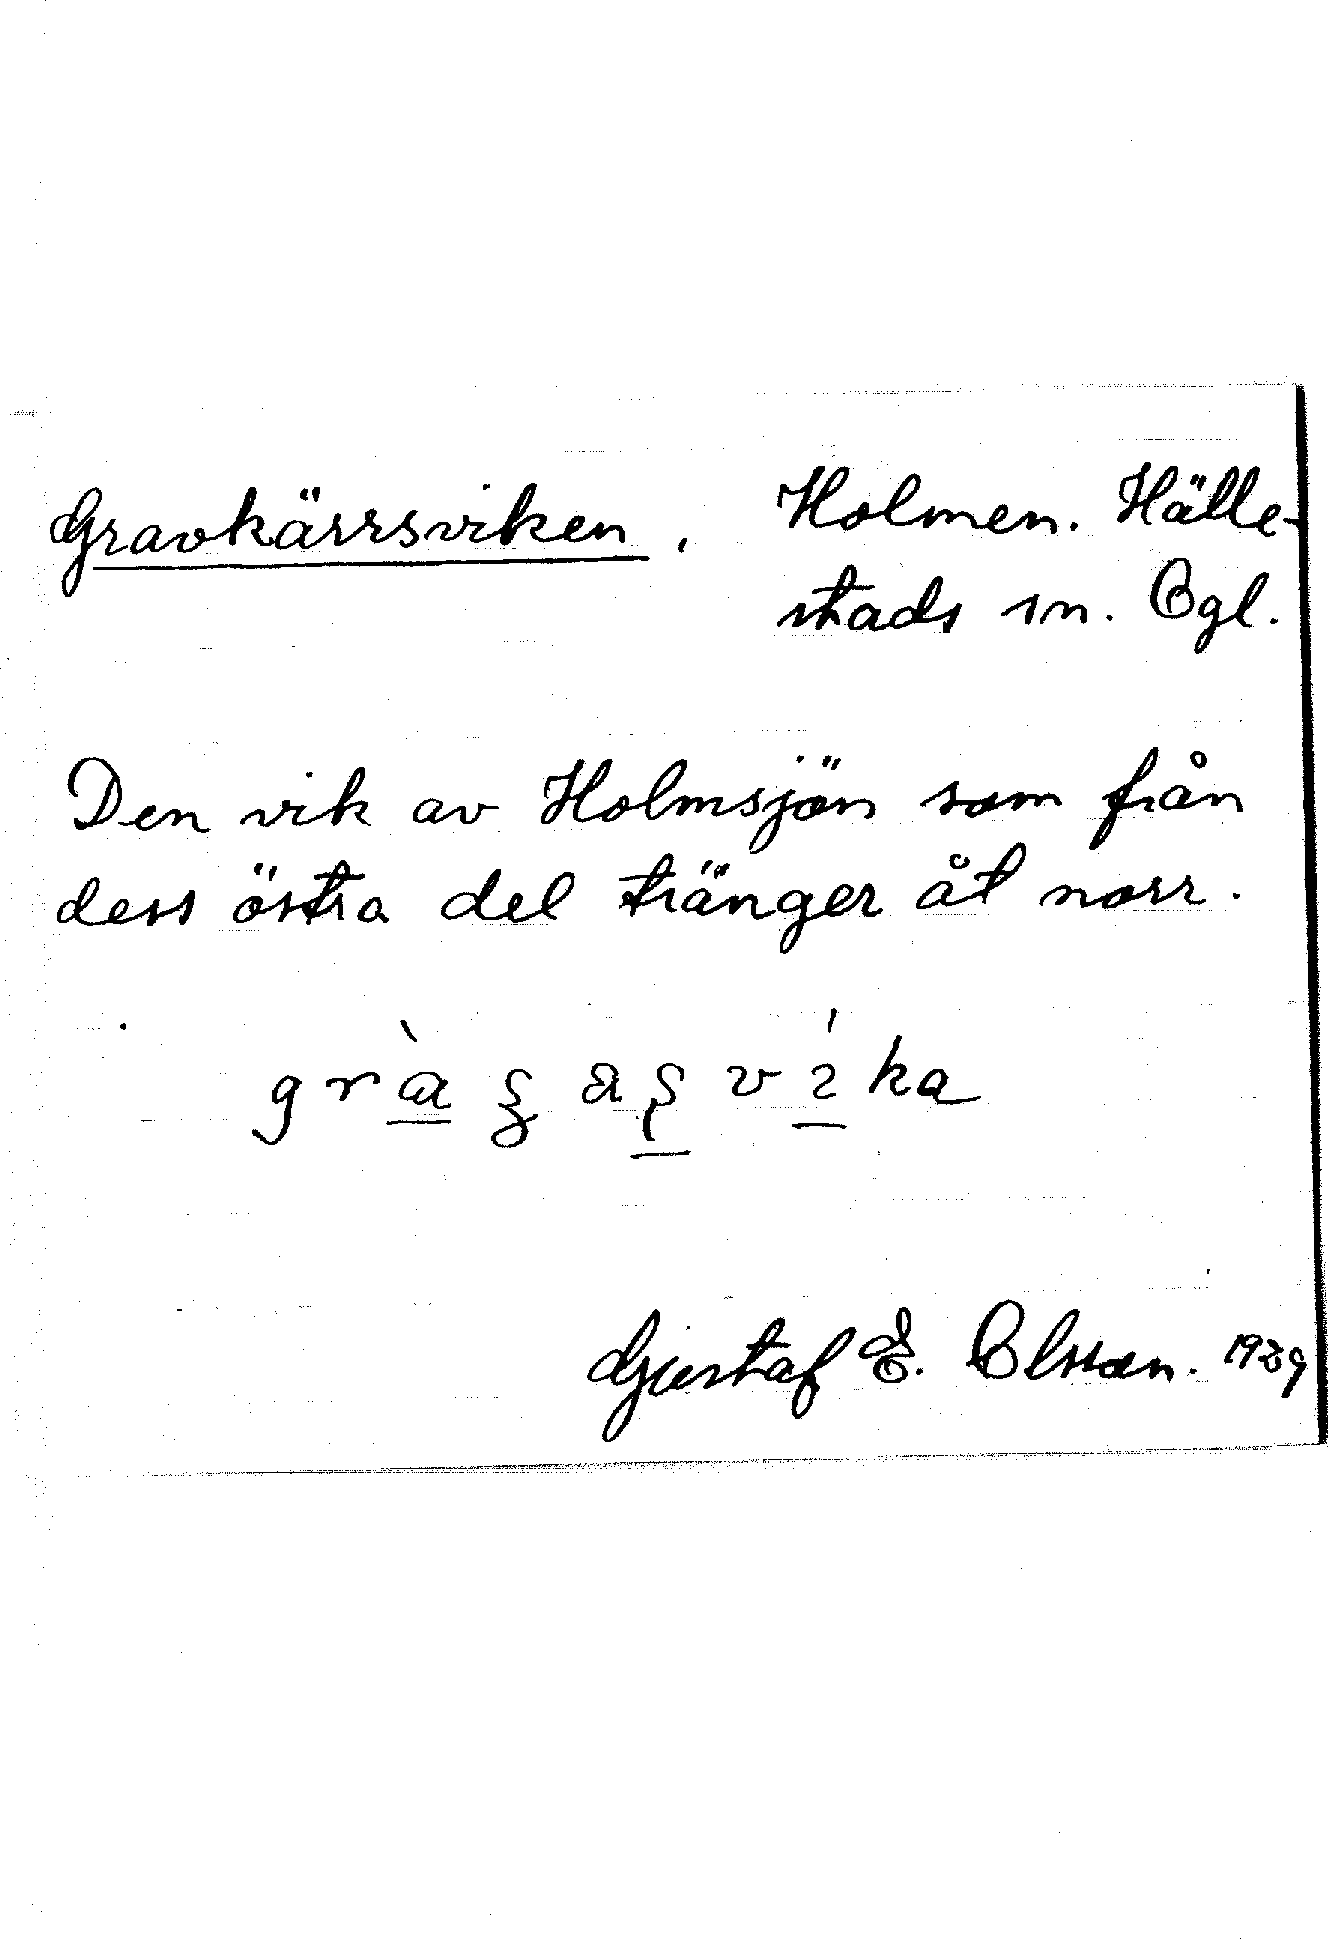 Gravkärrsviken, Holmen. Hälle-
stads sn. Ögl.
Den vik av Holmsjön som från
dess östra del tränger åt norr.
Gustaf E. Olsson. 1929